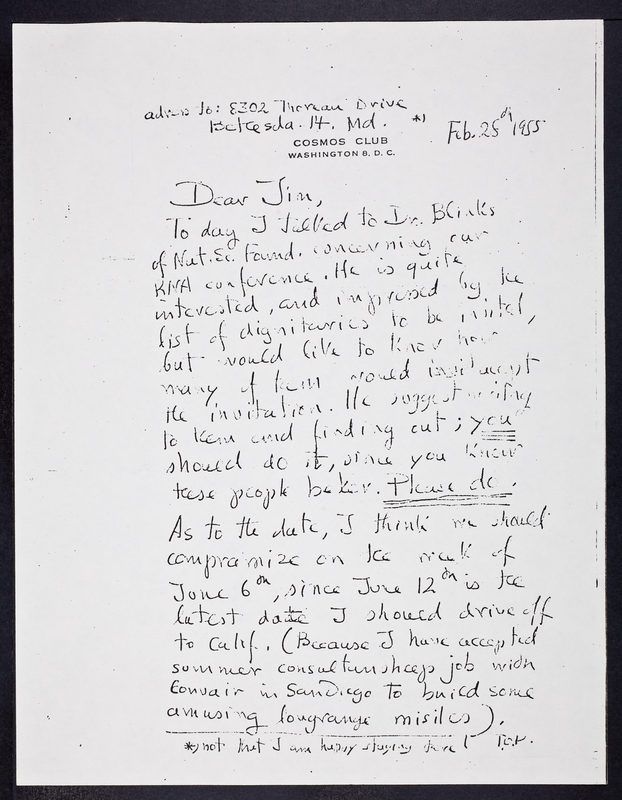 adress to: 8302 Thoreau Drive
Bethesda. 14. Md. *)
Feb. 25th 1955
COSMOS CLUB
WASHINGTON 8. D. C.
Dear Jim,
To day I talked to Dr. Blinks
of Nat. Sc. Found. concerning our
RNA conference. He is quite
interested, and impressed by the
list of dignitaries to be invited,
but would like to know how
many of them would
the invitation. He suggest writing
to them and finding out; you
should do it, since you know
these people better. Please do.
As to the date, I think we should
compromize on the week of
June 6th, since June 12th is the
latest date I should drive off
to Calif. (Because I have accepted
summer job with
Convair in San Diego to build some
amusing longrange misiles).
*) not that I am happy staying there!